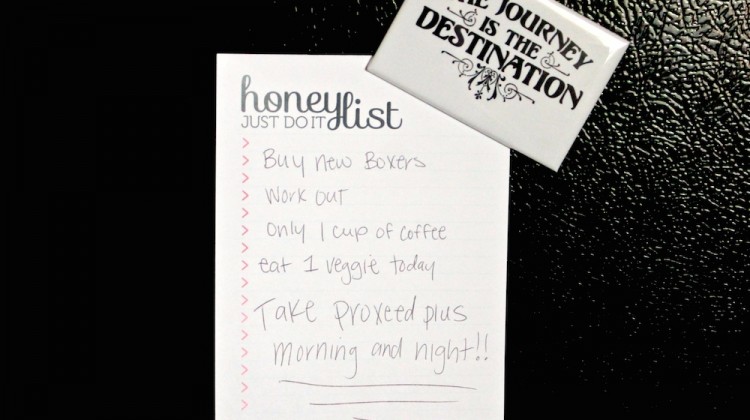 THE JOURNEY
IS THE
DESTINATION
honeylist
JUST DO IT
Buy new Boxers
Work out
only 1 cup of coffee
eat 1 veggie today
Take Proxeed plus
morning and night!!